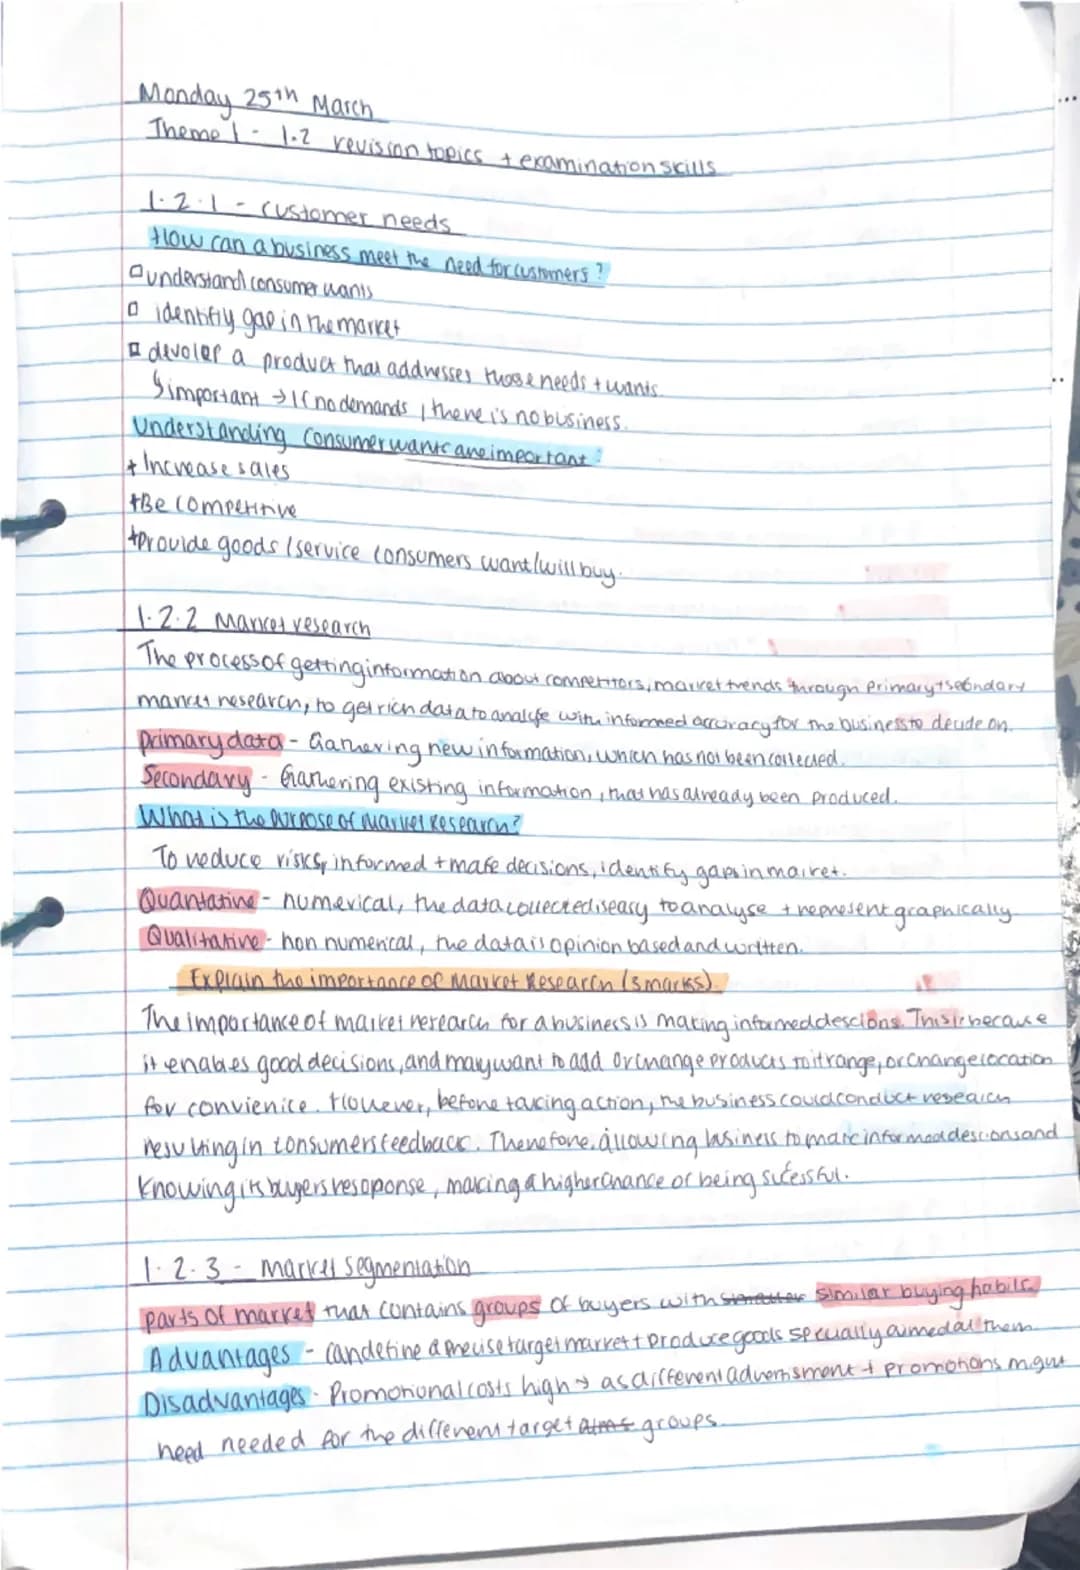 Monday 25th March
Theme 1 - 1.2 revision topics + examination skills
1.2.1 - customer needs
How can a business meet the need for customers?
understand consumer wants
identifiy gap in the market
devolep a product that addresses those needs + wants.
important → If no demands, there is no business.
Understanding consumer wants are important:
+ Increase sales
+Be competitive
+provide goods/service consumers want/will buy.
1.2.2 Market research
The process of getting information about competitors, market trends through primary+secondary
market research, to get rich data to with informed accuracy for the business to decide on.
primary data - Gathering new information, which has not been collected.
Secondary - Gathering existing information, that has already been produced.
What is the purpose of market Research?
To reduce risks, informed + make decisions, identify gaps in market.
Quantative - numerical, the data collected is easy to analyse + represent graphically
Qualitative - non numerical, the data is opinion based and written.
Explain the importance of Market Research (3 marks).
The importance of market research for a business is making informed descions. This is because
it enables good decisions, and may want to add or change products to it range, or change location
for convienice. However, before taking action, the business could conduct research
resulting in consumers feedback. Therefore, allowing business to make informed descions and
knowing its buyers response, making a higher chance of being sucessful.
1.2.3 - market segmentation
parts of market that contains groups of buyers with similar buying habits.
Advantages - can define a precise target market + produce goods specually aimed at them
Disadvantages - Promotional costs high → as different advertisment + promotions might
need needed for the different target aims groups.